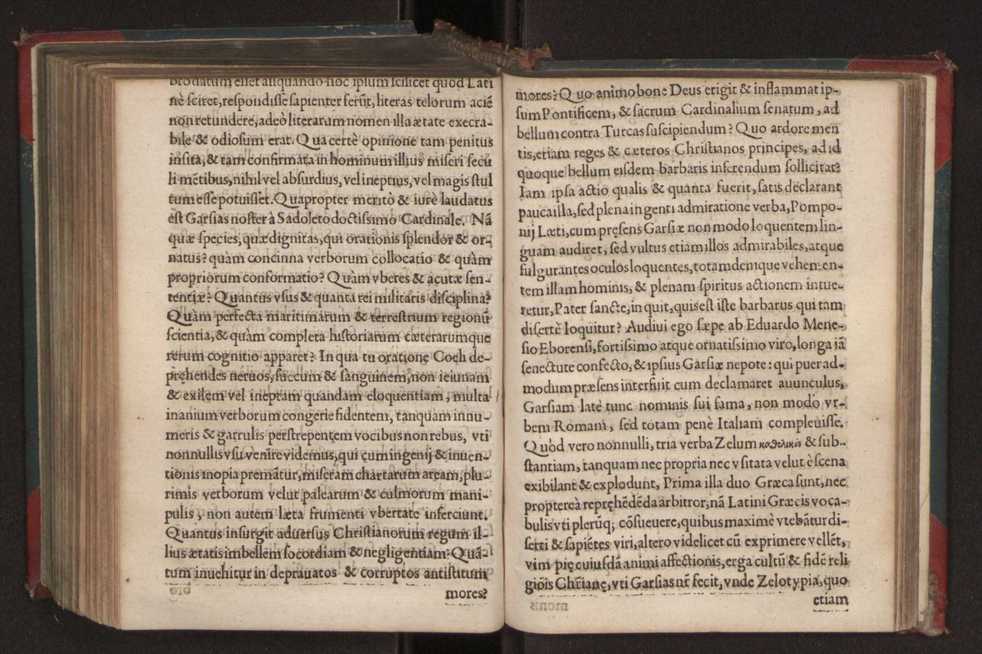 bro datum esset aliquando hoc ipsum scilicet quod Lati
nè sciret, respondisse sapienter ferũt, literas telorum aciẽ
non retundere, adeò literarum nomen illa ætate execra-
bile & odiosum erat. Qua certè opinione tam penitus
insita, & tam confirmata in hominum illius miseri secu
li mẽtibus, nihil vel absurdius, vel ineptius, vel magis stul
tum esse potuisset. Quapropter meritò & iurè laudatus
est Garsias noster à Sadoleto doctissimo Cardinale. Nã
quæ species, quæ dignitas, qui orationis splendor & or-
natus? quàm concinna verborum collocatio & quàm
propriorum conformatio? Quàm vberes & acutæ sen-
tentiæ? Quantus vsus & quanta rei militaris disciplina?
Quàm perfecta maritimarum & terrestrium regionũ
scientia, & quàm completa historiarum cæterarumque
rerum cognitio apparet? In qua tu oratione Coeli de-
prehendes neruos, succum & sanguinem, non ieiunam
& exilem vel ineptam quandam eloquentiam, multa
inanium verborum congerie fidentem, tanquam innu-
meris & garrulis perstrepentem vocibus non rebus, vti
nonnullus vsu venire videmus, qui cum ingenij & inuen-
tionis inopia premãtur, miseram chartarum aream, plu-
rimis verborum velut palearum & culmorum mani-
pulis, non autem læta frumenti vbertate inferciunt.
Quantus insurgit aduersus Christianorum regum il-
lius ætatis imbellem socordiam & negligentiam? Quã-
tum inuehitur in deprauatos & corruptos antistitum
mores?
mores? Quo animo bone Deus erigit & inflammat ip-
sum Pontificem, & sacrum Cardinalium senatum, ad
bellum contra Turcas suscipiendum? Quo ardore men
tis, etiam reges & cæteros Christianos principes, ad id
quoque bellum eisdem barbaris inferendum sollicitat?
Iam ipsa actio qualis & quanta fuerit, satis declarant
pauca illa, sed plena ingenti admiratione verba, Pompo-
nij Læti, cum presens Garsiæ non modo loquentem lin-
guam audiret, sed vultus etiam illos admirabiles, atque
fulgurantes oculos loquentes, totam denique vehemen-
tem illam hominis, & plenam spiritus actionem intue-
retur, Pater sancte, inquit, quis est iste barbarus qui tam
disertè loquitur? Audiui ego sæpe ab Eduardo Mene-
sio Eborensi, fortissimo atque ornatissimo viro, longa iã
senectute confecto, & ipsius Garsiæ nepote: qui puer ad-
modum præsens interfuit cum declamaret auunculus,
Garsiam latè tunc nominis sui fama, non modo vr-
bem Romam, sed totam penè Italiam compleuisse.
Quòd vero nonnulli, tria verba Zelum καθολικὸ & sub-
stantiam, tanquam nec propria nec vsitata velut è scena
exibilant & explodunt, Prima illa duo Græca sunt, nec
propterea reprehẽdẽda arbitror, nã Latini Græcis voca-
bulis vti plerũq; cõsueuere, quibus maximè vtebãtur di-
serti & sapiẽtes viri, altero videlicet cũ exprimere vellẽt,
vim piæ cuiusdã animi affectionis, erga cultũ & fidẽ reli
giõis Chr̃ianę, vti Garsias nr̃ fecit, vnde Zelotypia, quo
etiam